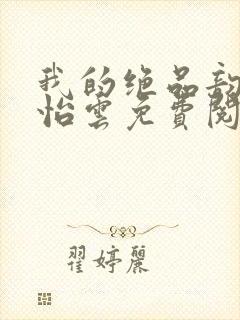 我的绝品
怡雲免費閱
翟婷麗